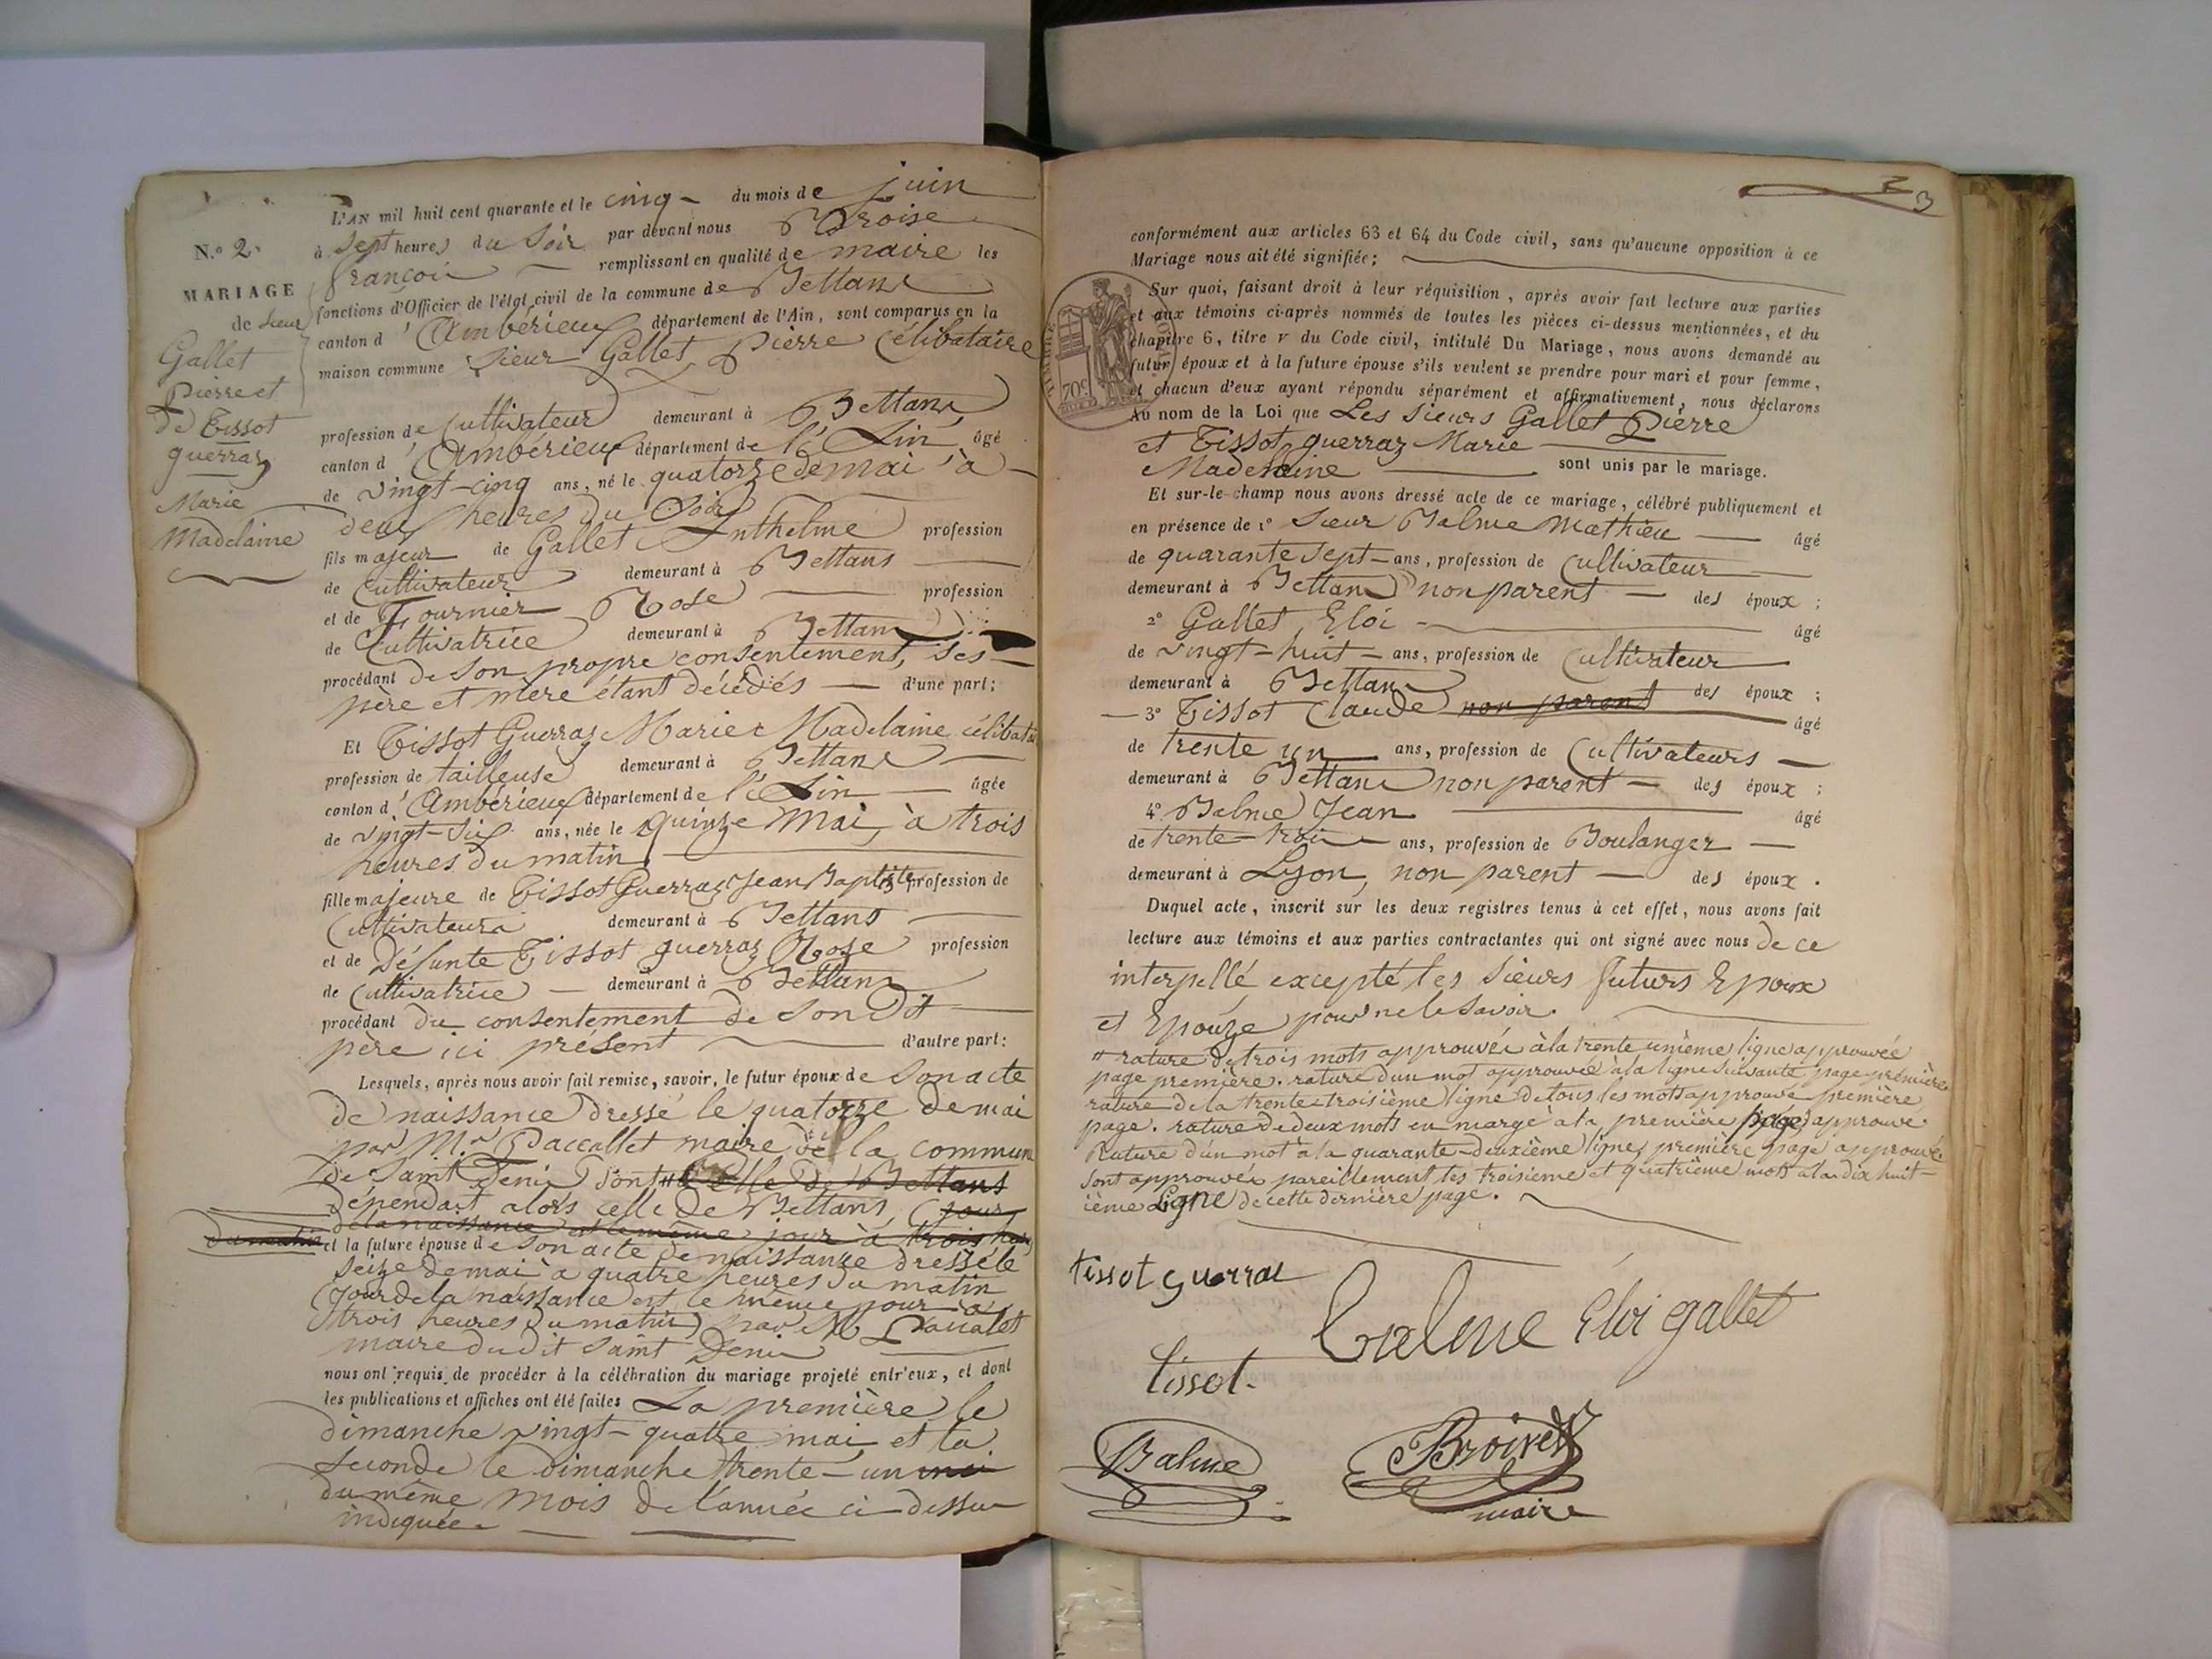 N.º 2.
MARIAGE
de Sieur
Gallet
Pierre et
de Tissot
guerraz
Marie
Madelaine
L'AN mil huit cent quarante et le cinq du mois de juin
à sept heures du soir par devant nous Broise
françois remplissant en qualité de maire les
fonctions d'Officier de l'état civil de la commune de Bettans
canton d'Ambérieux département de l'Ain, sont comparus en la
maison commune Sieur Gallet Pierre Célibataire
profession de Cultivateur demeurant à Bettans
canton d'Ambérieux département de l'Ain âgé
de vingt-cinq ans, né le quatorze de mai à
deux heures du soir
fils majeur de Gallet Anthelme profession
de Cultivateur demeurant à Bettans
et de Fournier Rose profession
de Cultivatrice demeurant à Bettans
procédant de son propre consentement, ses
père et mère étant décédés d'une part;
Et Tissot Guerraz Marie Madelaine célibataire
profession de tailleuse demeurant à Bettans
canton d'Ambérieux département de l'Ain âgée
de vingt-six ans, née le quinze Mai, à trois
heures du matin
fille majeure de Tissot Guerraz Jean Baptiste profession de
Cultivateur demeurant à Bettans
et de Défunte Tissot guerraz Rose profession
de Cultivatrice demeurant à Bettans
procédant du consentement de son dit
père ici présent d'autre part:
Lesquels, après nous avoir fait remise, savoir, le futur époux de son acte
de naissance dressé le quatorze de mai
par M.r Paccallet maire de la commune
de Saint Denis dont celle de Bettans
dépendait alors celle de Bettans, (jour
de la naissance est le même jour à trois heures
du matin
et la future épouse de son acte de naissance dressé le
seize de mai à quatre heures du matin
(jour de la naissance est le même jour à
trois heures du matin) par M. Paccalet
maire du dit Saint Denis
nous ont requis de procéder à la célébration du mariage projeté entr'eux, et dont
les publications et affiches ont été faites La première le
dimanche vingt-quatre mai et la
seconde le dimanche trente-un mai
du même mois de l'année ci-dessus
indiquée.
3
conformément aux articles 63 et 64 du Code civil, sans qu'aucune opposition à ce
Mariage nous ait été signifiée;
Sur quoi, faisant droit à leur réquisition, après avoir fait lecture aux parties
et aux témoins ci-après nommés de toutes les pièces ci-dessus mentionnées, et du
chapitre 6, titre V du Code civil, intitulé Du Mariage, nous avons demandé au
futur époux et à la future épouse s'ils veulent se prendre pour mari et pour femme,
et chacun d'eux ayant répondu séparément et affirmativement, nous déclarons
Au nom de la Loi que Les Sieurs Gallet Pierre
et Tissot guerraz Marie
Madelaine sont unis par le mariage.
TIMBRE ROYAL
70c
Et sur-le-champ nous avons dressé acte de ce mariage, célébré publiquement et
en présence de 1º Sieur Balme Mathieu âgé
de quarante sept ans, profession de Cultivateur
demeurant à Bettans non parent des époux;
2º Gallet Eloi âgé
de vingt-huit ans, profession de Cultivateur
demeurant à Bettans des époux;
3º Tissot Claude non parent âgé
de trente un ans, profession de Cultivateurs
demeurant à Bettans non parent des époux;
4º Balme Jean âgé
de trente-trois ans, profession de Boulanger
demeurant à Lyon, non parent des époux.
Duquel acte, inscrit sur les deux registres tenus à cet effet, nous avons fait
lecture aux témoins et aux parties contractantes qui ont signé avec nous de ce
interpellé excepté les Sieurs futurs Epoux
et Epouze pour ne le savoir.
rature de trois mots approuvée à la trente unième ligne approuvée
page première. rature d'un mot approuvée à la ligne suivante page première
rature de la trente-troisième ligne de tous les mots approuve première
page. rature de deux mots en marge à la première page approuve
Rature d'un mot à la quarante-deuxième ligne, première page approuvée
sont approuvés pareillement les troisième et quatrième mots à la dix huit-
ième Ligne de cette dernière page.
tissot guerraz
Balme Eloi gallet
tissot.
Balme
Broise
maire